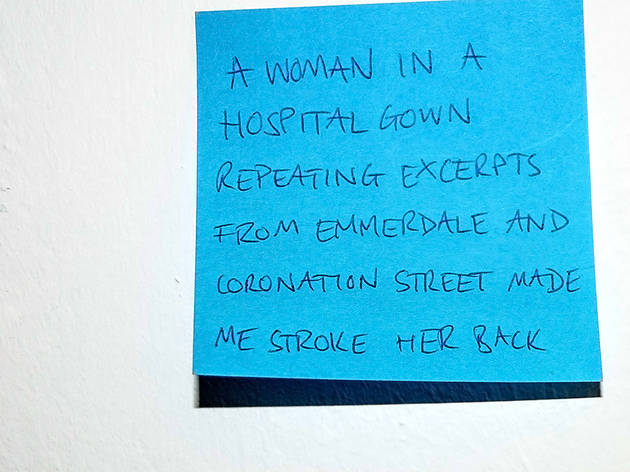 A WOMAN IN A
HOSPITAL GOWN
REPEATING EXCERPTS
FROM EMMERDALE AND
CORONATION STREET MADE
ME STROKE HER BACK